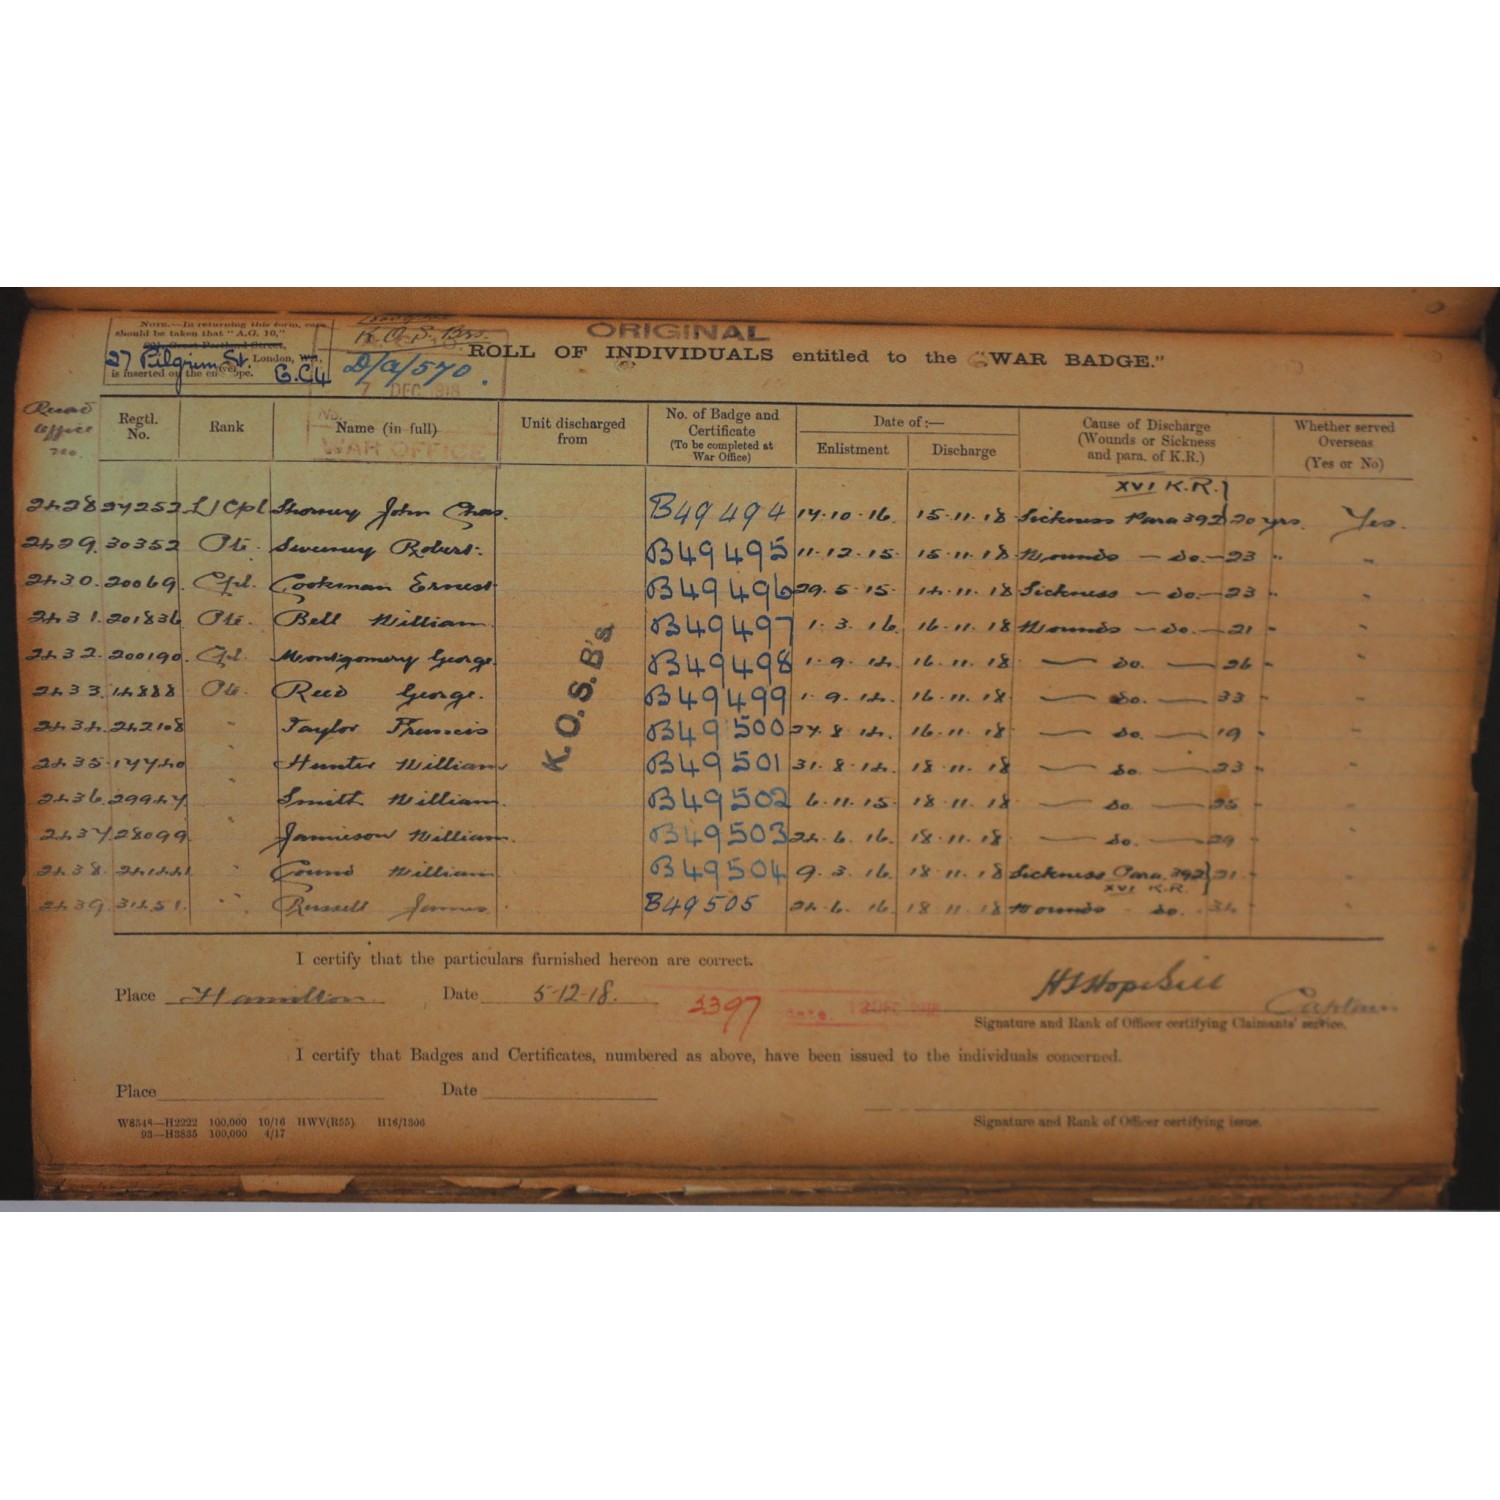 NOTE.—In returning this form, care
should be taken that "A.G. 10,"
Great Portland Street,
27 Pilgrim St. London,
is inserted on the envelope. E.C.4
K.O.S.Brs.
D/a/570.
7 DEC 1918
WAR OFFICE
ORIGINAL
ROLL OF INDIVIDUALS entitled to the "WAR BADGE."
Office No.
Regtl. No.
Rank
Name (in full)
Unit discharged from
No. of Badge and Certificate
(To be completed at War Office)
Date of:—
Enlistment
Discharge
Cause of Discharge
(Wounds or Sickness and para. of K.R.)
Whether served Overseas
(Yes or No)
XVI K.R.}
2428 27252 L/Cpl John Chas. B49494 17.10.16. 15.11.18 Sickness Para 392 20 yrs. Yes.
2429. 30352 Pte. Sweeney Robert. B49495 11.12.15. 15.11.18 Wounds — do. — 23 " "
2430. 20069. Cpl. Cookman Ernest B49496 29.5.15. 14.11.18 Sickness — do. — 23 " "
2431. 201836 Pte. Bell William. B49497 1.3.16. 16.11.18 Wounds — do. — 21 " "
2432. 200190. Cpl. Montgomery George. B49498 1.9.14. 16.11.18 — do. — 26 " "
2433. 14888 Pte. Reid George. B49499 1.9.14. 16.11.18 — do. — 33 " "
2434. 242108 " Taylor Francis B49500 27.8.14. 16.11.18 — do. — 19 " "
2435. 17740 " Hunter William B49501 31.8.14. 18.11.18 — do. — 23 " "
2436. 29947 " Smith William. B49502 6.11.15 18.11.18 — do. — 25 "
2437 28099 " Jamieson William. B49503 24.6.16. 18.11.18 — do. — 29 "
2438. " William B49504 9.3.16. 18.11.18 Sickness Para. 392} 21 "
XVI K.R.
2439. 31451. " Russell James. B49505 24.6.16 18.11.18 Wounds do. 34 "
K.O.S.B's.
I certify that the particulars furnished hereon are correct.
Place Hamilton Date 5-12-18.
2397
Captain
Signature and Rank of Officer certifying Claimants' service.
I certify that Badges and Certificates, numbered as above, have been issued to the individuals concerned.
Place Date
Signature and Rank of Officer certifying issue.
W8548—H2222 100,000 10/16 HWV(R55) H16/1306
93—H3835 100,000 4/17